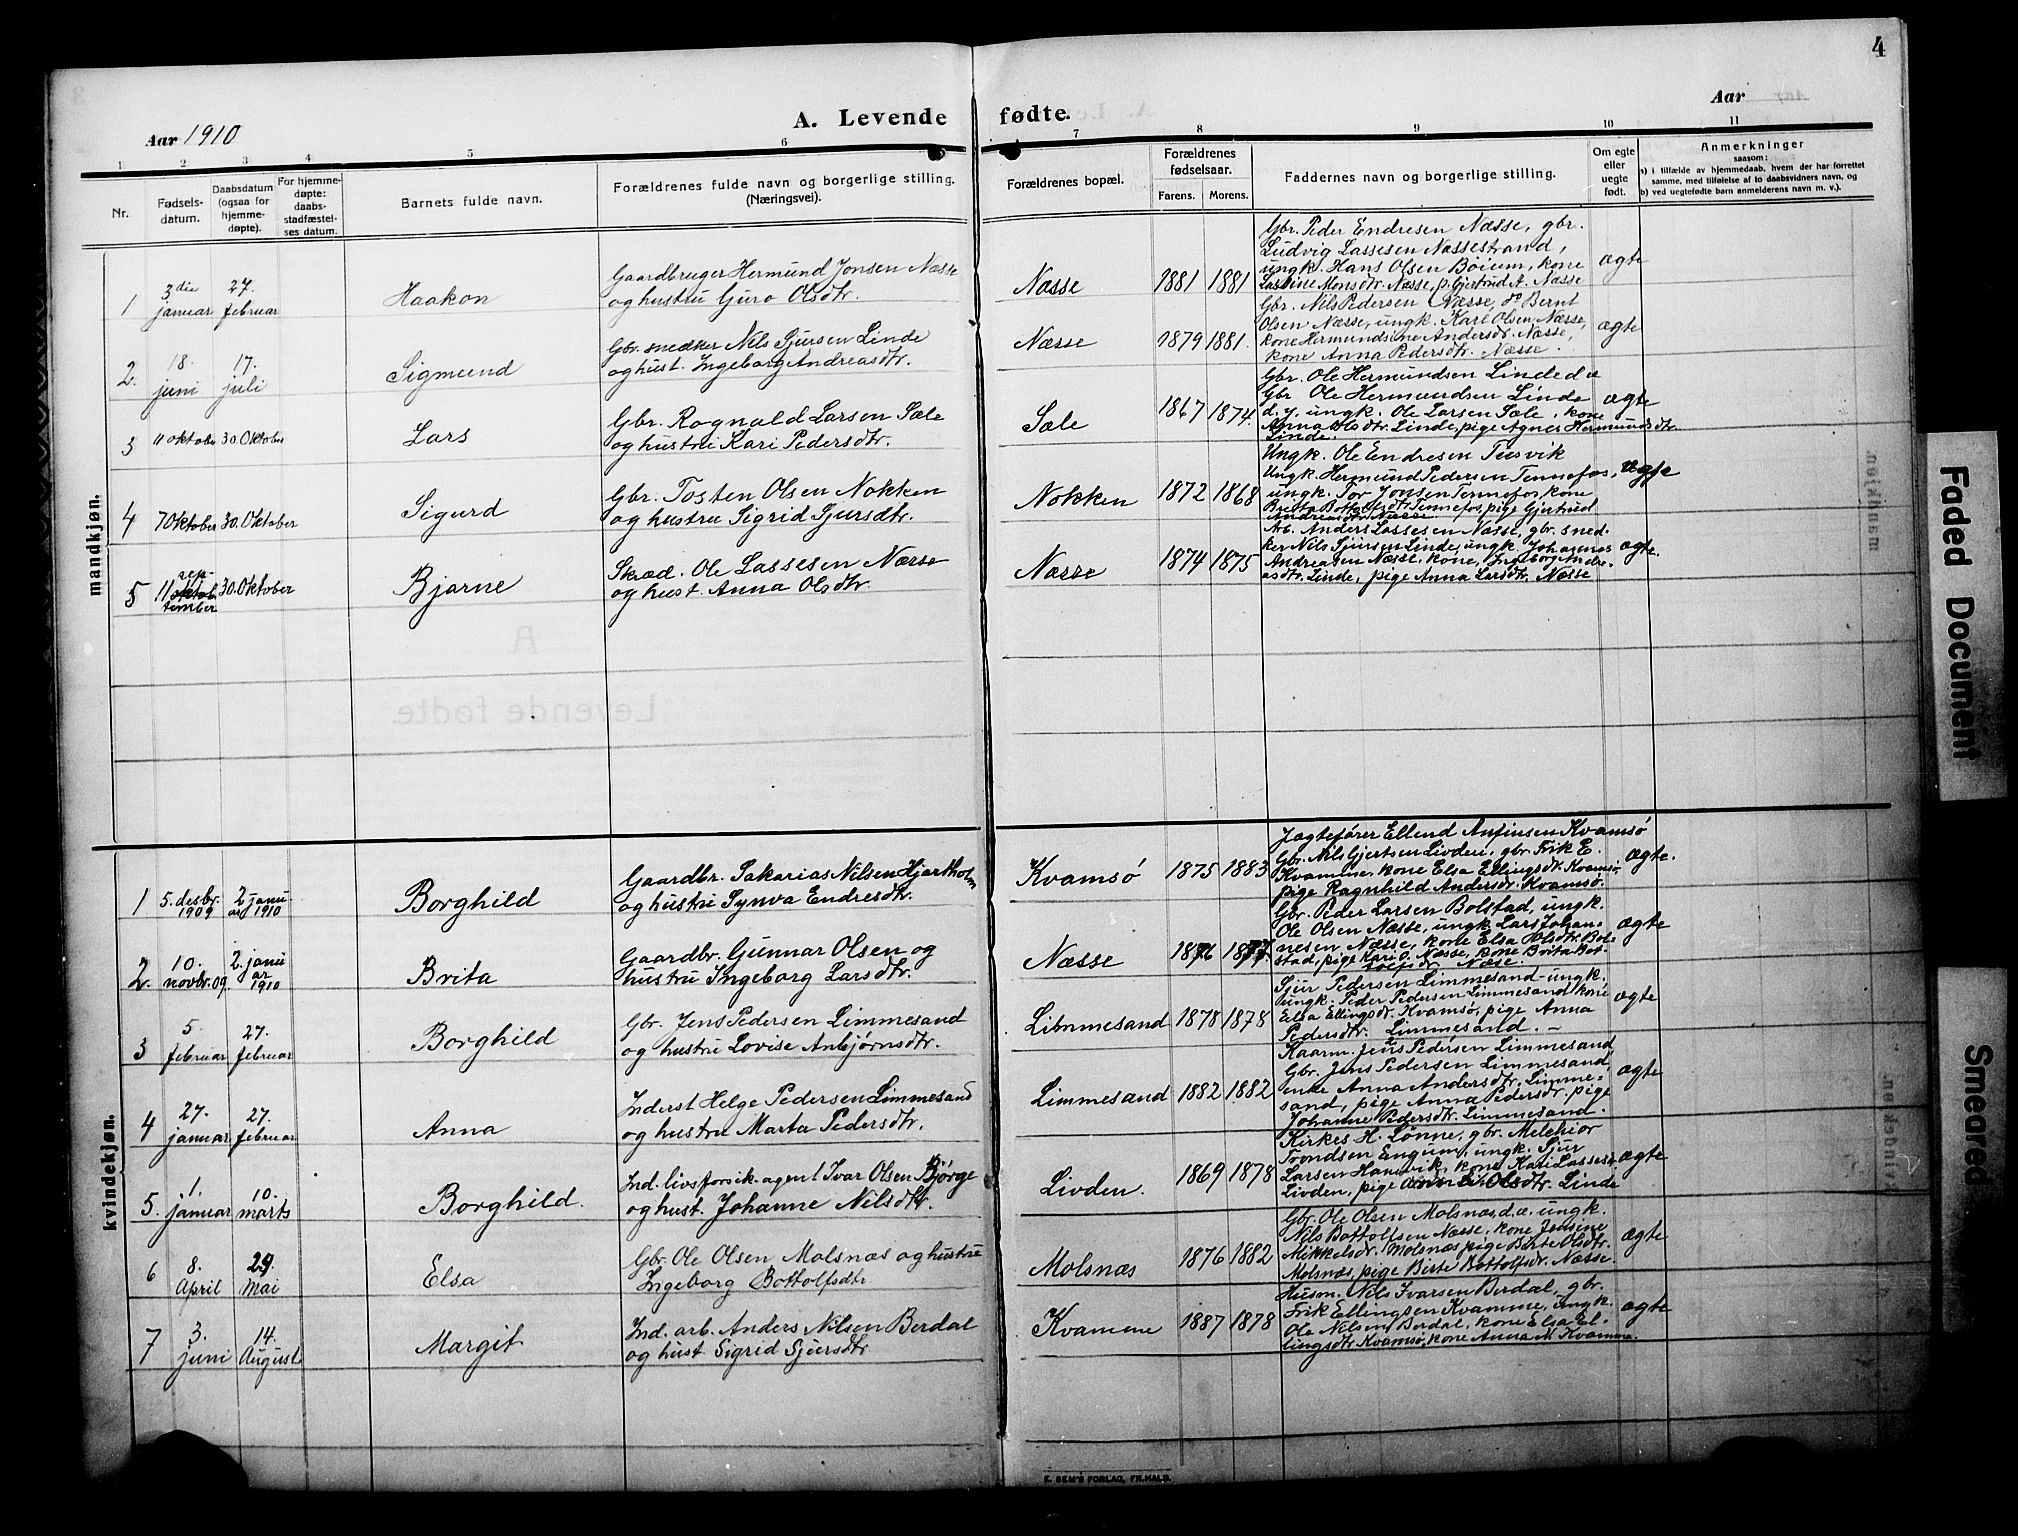 4
Aar 1910
A. Levende fødte.
Aar
1 2 3 4 5 6 7 8 9 10 11
Nr.
Fødsels-
datum.
Daabsdatum
(ogsaa for
hjemme-
døpte).
For hjemme-
døpte:
daabs-
stadfæstel-
ses datum.
Barnets fulde navn.
Forældrenes fulde navn og borgerlige stilling.
(Næringsvei).
Forældrenes bopæl.
Forældrenes
fødselsaar.
Farens. Morens.
Faddernes navn og borgerlige stilling.
Om egte
eller
uegte
født.
Anmerkninger
saasom:
a) i tilfælde av hjemmedaab, hvem der har forrettet
samme, med tilføielse af to daabsvidners navn, og
b) ved uegtefødte barn anmelderens navn m. v.).
mandkjøn.
1
3die
januar
27.
februar
Haakon
Gaardbruger Hermund Jonsen Næsse
og hustru Guro Olsdtr.
Næsse
1881 1881
Gbr. Peder Endresen Næsse, gbr.
Ludvig Lassesen Næssestrand,
ungk. Hans Olsen Böium, kone
Lassine Monsdtr. Næsse, p. Gjertrud A. Næsse
ægte
2.
18.
juni
17.
juli
Sigmund
Gbr. snedker Nils Sjursen Linde
og hust. Ingeborg Andreasdtr.
Næsse
1879 1881.
Gbr. Nils Pedersen Næsse, do Bernt
Olsen Næsse, ungk. Karl Olsen Næsse,
kone Hermundsine Andersdr. Næsse,
kone Anna Pedersdtr. Næsse.
ægte
3
11 oktober 30. Oktober
Lars
Gbr. Rognald Larsen Sæle
og hustru Kari Pedersdtr.
Sæle
1867 1874.
Gbr. Ole Hermundsen Linde d æ
Gbr Ole Hermundsen Linde
d. y. ungk. Ole Larsen Sæle, kone
Anna Olsdtr. Linde, pige Agnes Hermundsdtr
Linde.
ægte
4
7 Oktober 30. Oktober
Sigurd
Gbr. Tosten Olsen Nokken
og hustru Sigrid Sjursdtr.
Nokken
1872 1868
Ungk. Ole Endresen Tusvik
Ungk. Hermund Pedersen Tennefos,
ungk. Tor Jonsen Tennefos, kone
Brita Bottolfsdtr. Tennefos, pige Gjertrud
Andreasdtr. Næsse
ægte
5
11 sep-
oktob
tember
30 Oktober
Bjarne
Skræd. Ole Lassesen Næsse
og hust. Anna Olsdtr.
Næsse
1874 1875
Arb. Anders Lassesen Næsse, gbr. sned-
ker Nils Sjursen Linde, ungk. Johannes
Andreasen Næsse, kone, Ingeborg Andre-
asdtr. Linde, pige Anna Larsdtr. Næsse
ægte.
kvindekjøn.
1
5. desbr.
1909
2 janu
ar 1910
Borghild
Gaardbr. Sakarias Nilsen Hjartholm
og hustru Synva Endresdtr.
Kvamsö
1875 1883
Jægtefører Ellend Anfinsen Kvamsö
Gbr. Nils Gjertsen Livden, gbr. Frik E.
Kvamme, kone Elsa Ellingsdtr. Kvamsö,
pige Ragnhild Andersdr. Kvamsö.
ægte.
2.
10.
novbr. 09.
2. janu
ar
1910
Brita
Gaardbr. Gunnar Olsen og
hustru Ingeborg Larsdtr.
Næsse
1876 1877.
Gbr. Peder Larsen Bolstad, ungk.
Ole Olsen Næsse, ungk. Lars Johan-
nesen Næsse, kone Elsa Olsdtr. Bol-
stad, pige Kari O. Næsse, kone Brita Bot-
tolfsdr. Næsse.
ægte
3
5
februar
27.
februar
Borghild
Gbr. Jens Pedersen Limmesand
og hustru Lovise Anbjørnsdtr.
Limmesand
1878 1878
Sjur Pedersen Limmesand ungk.
ungk. Peder Pedersen Limmesand kone
Elsa Ellingsdr. Kvamsö, pige Anna
Pedersdtr. Limmesand. —
ægte
4
27.
januar
27.
februar
Anna
Inderst Helge Pedersen Limmesand
og hustru Marta Pedersdtr.
Limmesand
1882 1882
Kaarm. Jens Pedersen Limmesand
Gbr. Jens Pedersen Limmesand,
enke Anna Andersdtr. Limme-
sand, pige Anna Pedersdtr, pige
Johanne Pedersdtr. Limmesand.
ægte
5.
1.
januar
10.
marts
Borghild.
Ind. livsforsik. agent Ivar Olsen Bjørge
og hust. Johanne Nilsdtr.
Livden.
1869 1878
Kirkes. H. Lønne, gbr. Melchior
Trondsen Engum, ungk. Sjur
Larsen Hamvik, kone Kari Lassesd.
Livden, pige Anna Olsdtr. Linde
ægte
6
8.
April
29.
Mai
Elsa
Gbr. Ole Olsen Molsnæs og hustru
Ingeborg Bottolfsdtr
Molsnæs
1876 1882
Gbr. Ole Olsen Molsnæs, d. æ. ungk.
Nils Bottolfsen Næsse, kone Jensine
Mikkelsdr. Molsnæs, pige Birte Olsdtr.
Molsnæs, pige Birte Bottolfsdr. Næsse.
ægte
7
3.
juni
14.
August
Margit
Ind. arb. Anders Nilsen Berdal
og hust. Sigrid Sjursdtr
Kvamme
1887 1878
Husm. Nils Ivarsen Berdal, gbr.
Frik Ellingsen Kvamme, ungk.
Ole Nilsen Berdal, kone Elsa El-
lingsdtr Kvamsö, kone Anna M. Kvamme.
ægte
E. SEM'S FORLAG, FR.HALD.
Faded Document
Smeared